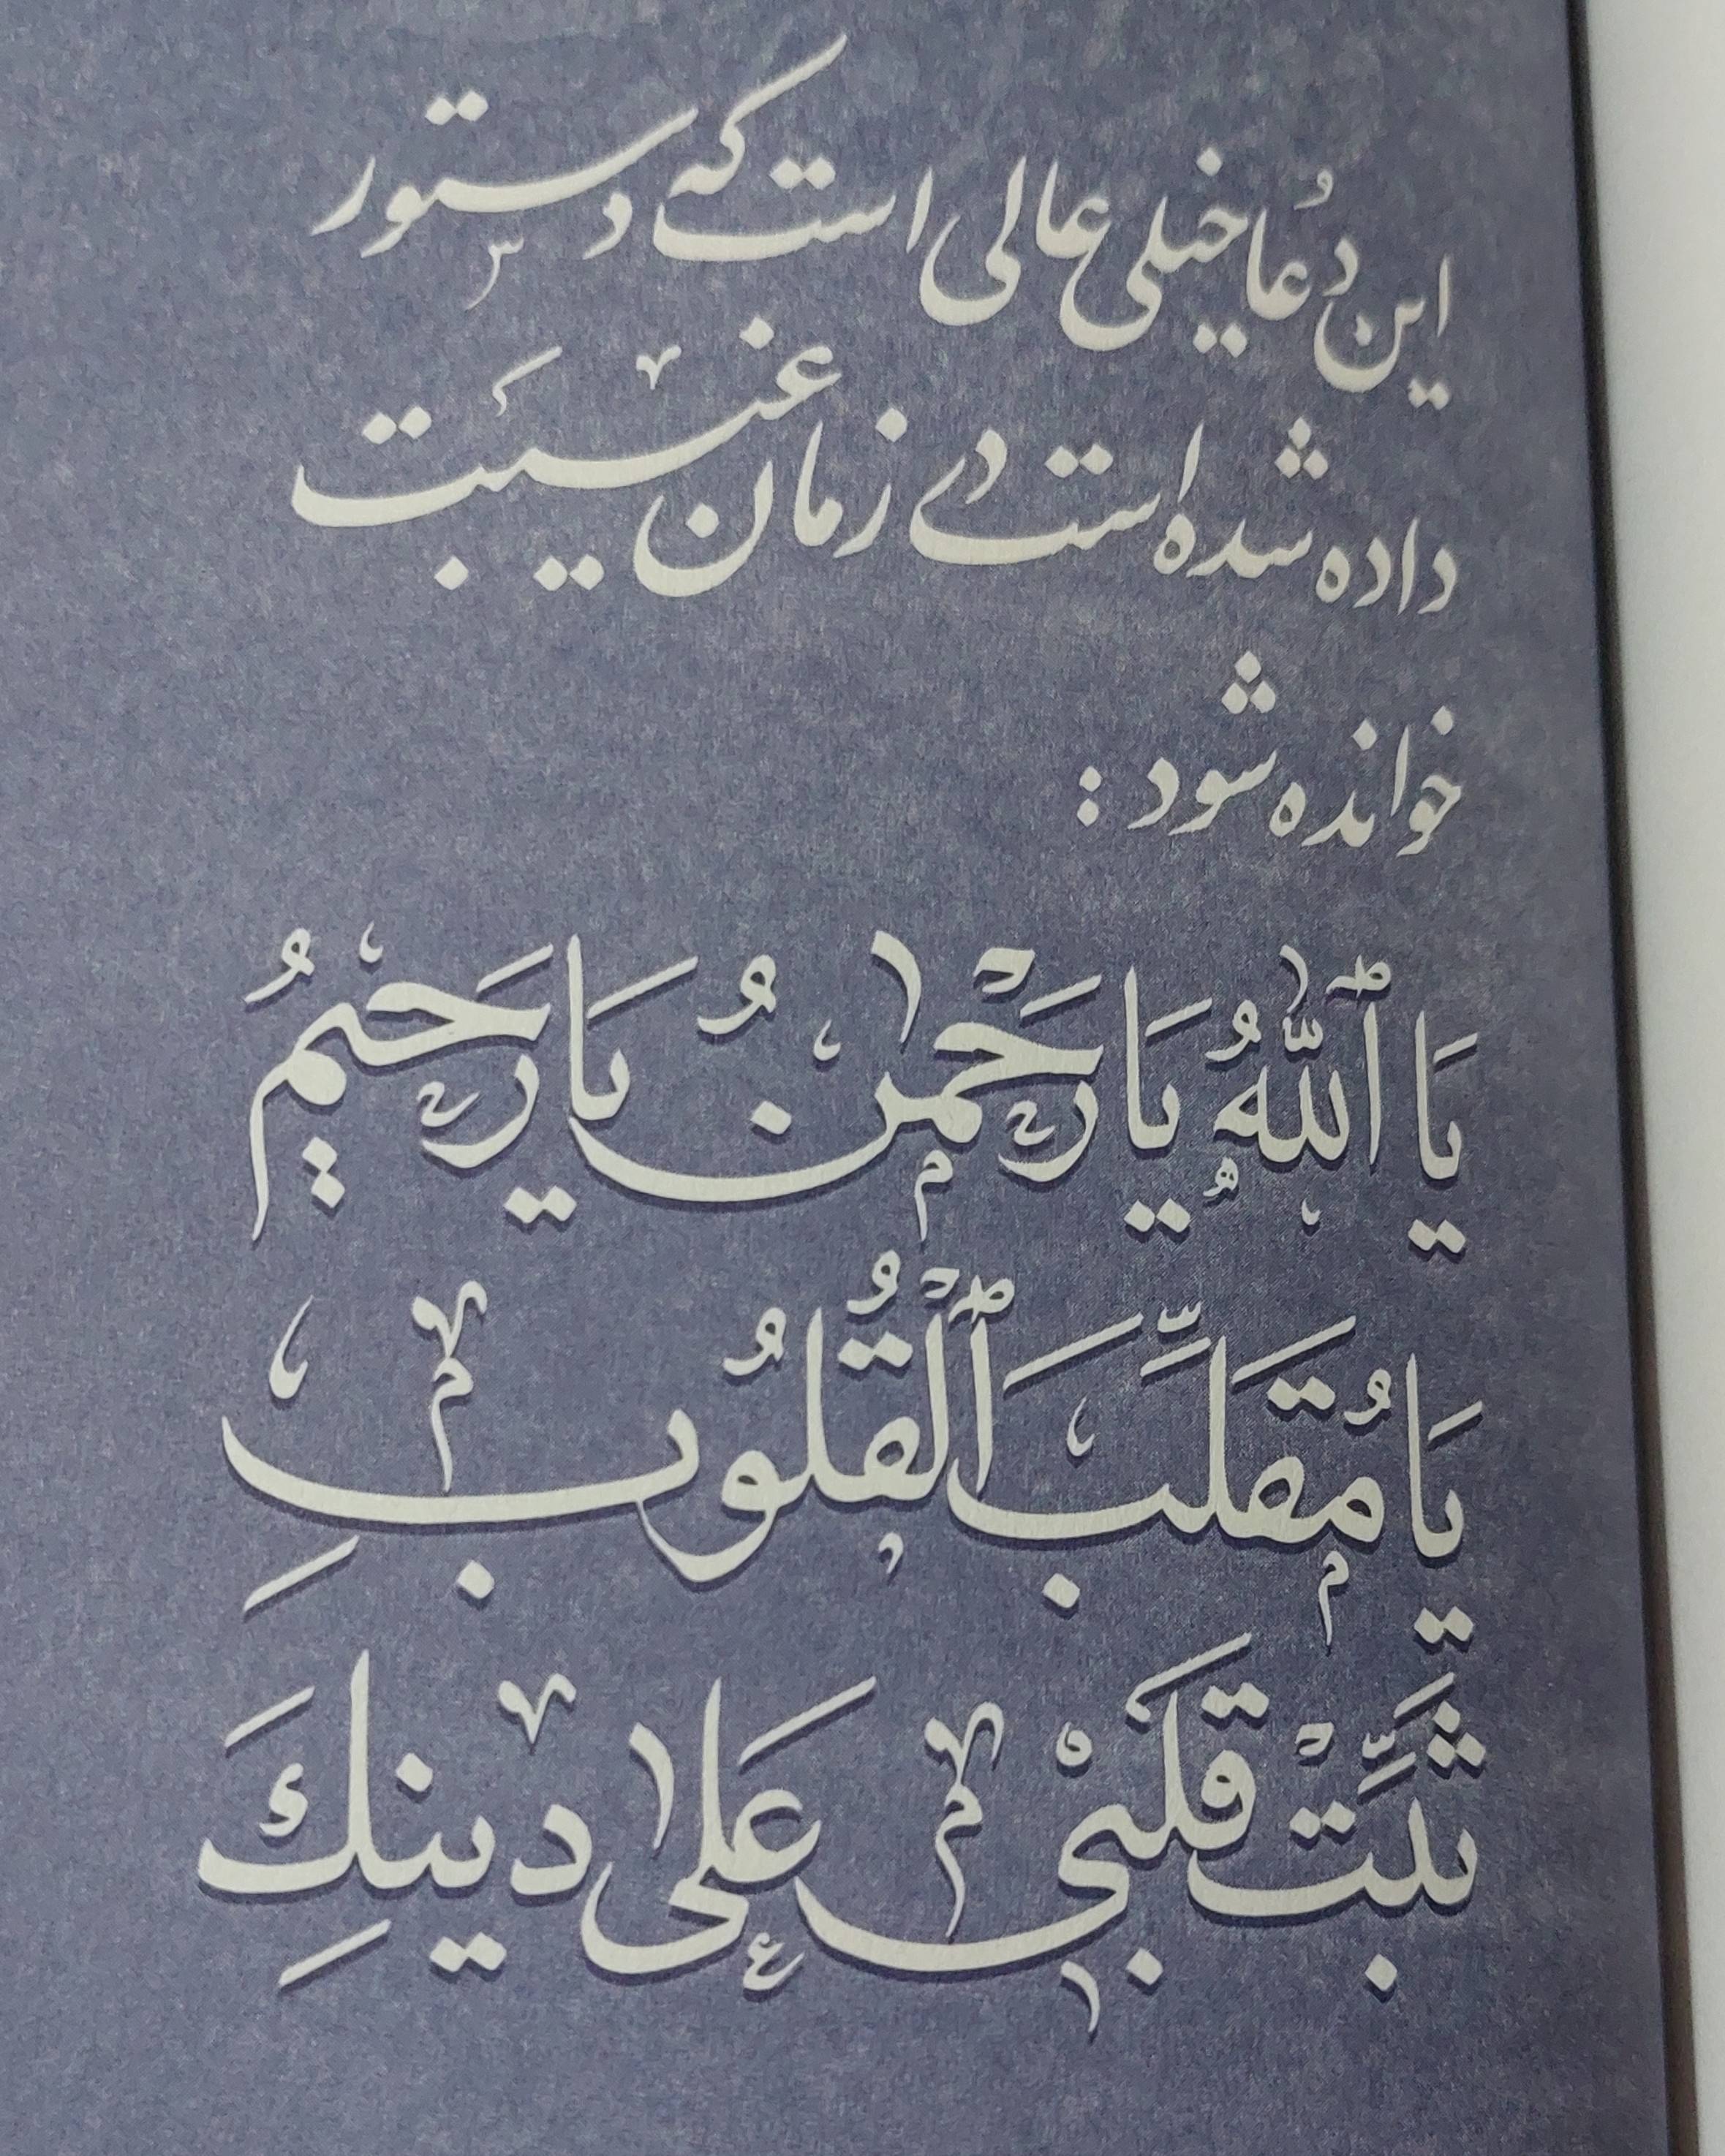 این دُعا خیلی عالی است که دستور
داده شده است در زمان غیبت
خوانده شود :
یَا ٱللّٰهُ یَا رَحْمٰنُ یَا رَحیمُ
یَا مُقَلِّبَ ٱلْقُلُوبِ
ثَبِّتْ قَلْبی عَلیٰ دینِكَ